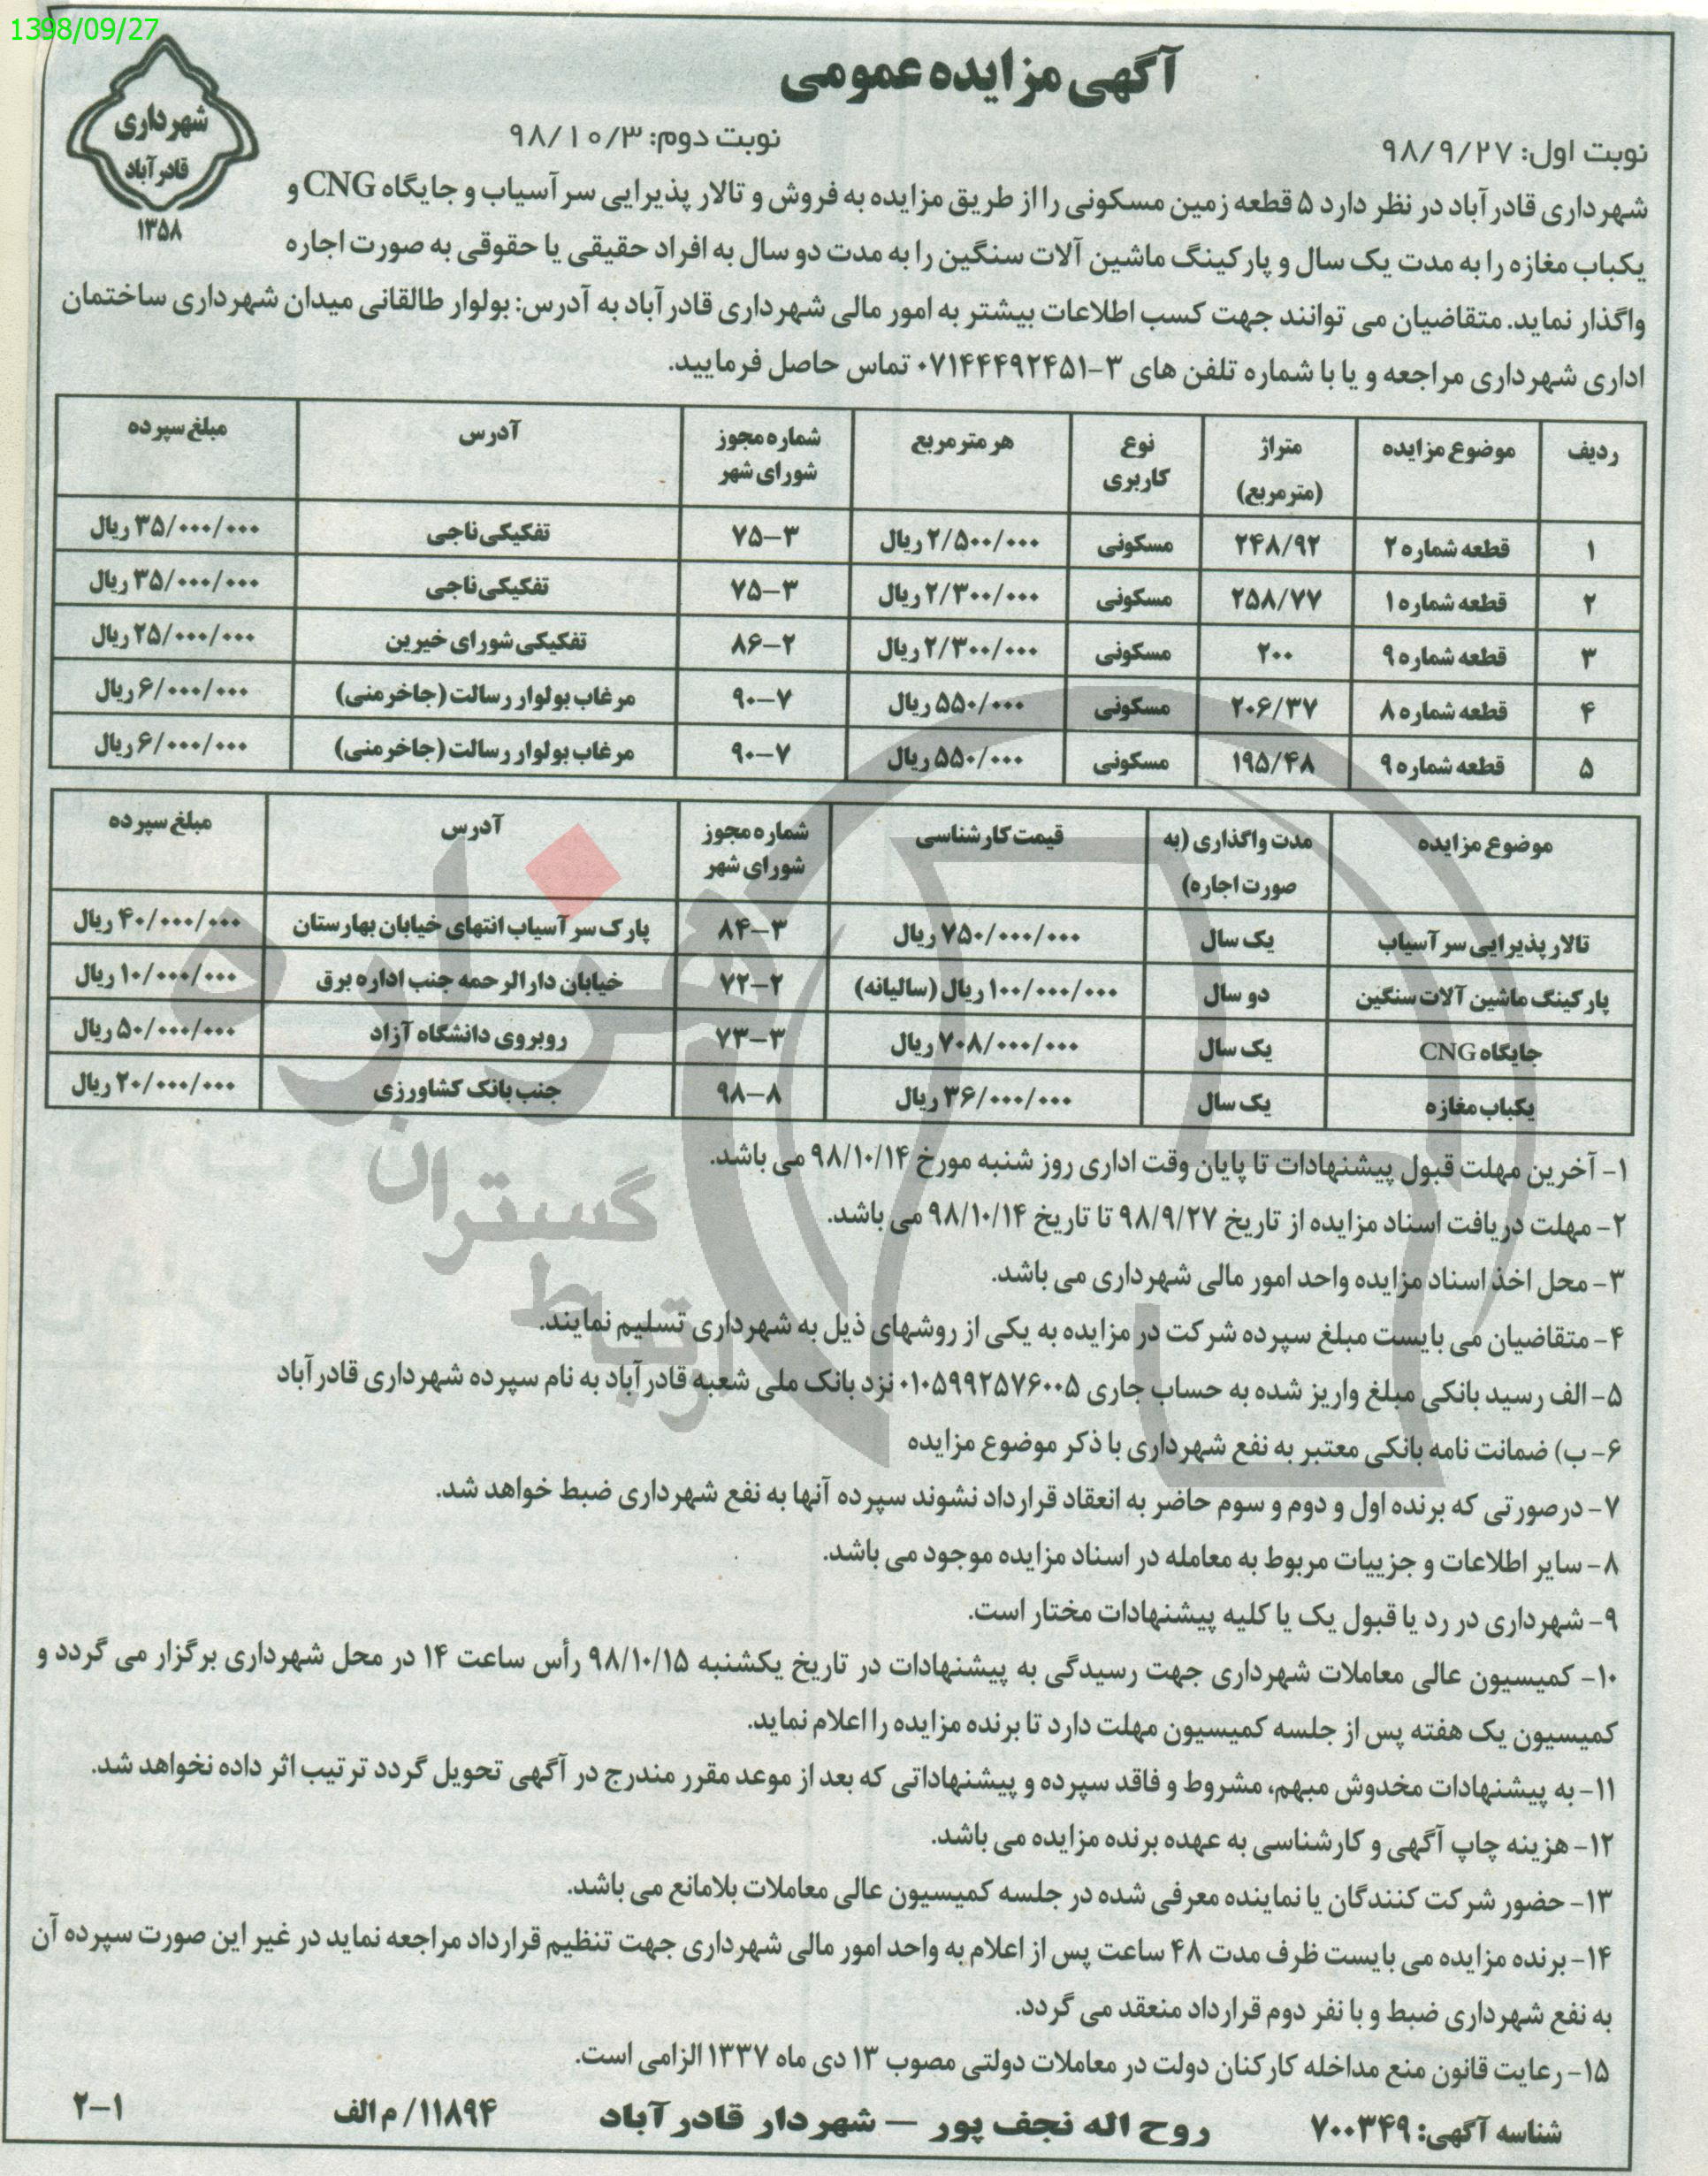 1398/09/27
آگهی مزایده عمومی
شهرداری
قادرآباد
۱۳۵۸
نوبت اول: ۹۸/۹/۲۷
نوبت دوم: ۹۸/۱۰/۳
شهرداری قادرآباد در نظر دارد ۵ قطعه زمین مسکونی را از طریق مزایده به فروش و تالار پذیرایی سرآسیاب و جایگاه CNG و
یکباب مغازه را به مدت یک سال و پارکینگ ماشین آلات سنگین را به مدت دو سال به افراد حقیقی یا حقوقی به صورت اجاره
واگذار نماید. متقاضیان می توانند جهت کسب اطلاعات بیشتر به امور مالی شهرداری قادرآباد به آدرس: بولوار طالقانی میدان شهرداری ساختمان
اداری شهرداری مراجعه و یا با شماره تلفن های ۳-۰۷۱۴۴۴۹۲۴۵۱ تماس حاصل فرمایید.
ردیف موضوع مزایده متراژ (مترمربع) نوع کاربری هر مترمربع شماره مجوز شورای شهر آدرس مبلغ سپرده
۱ قطعه شماره ۲ ۲۴۸/۹۲ مسکونی ۲/۵۰۰/۰۰۰ ریال ۷۵-۳ تفکیکی ناجی ۳۵/۰۰۰/۰۰۰ ریال
۲ قطعه شماره ۱ ۲۵۸/۷۷ مسکونی ۲/۳۰۰/۰۰۰ ریال ۷۵-۳ تفکیکی ناجی ۳۵/۰۰۰/۰۰۰ ریال
۳ قطعه شماره ۹ ۲۰۰ مسکونی ۲/۳۰۰/۰۰۰ ریال ۸۶-۲ تفکیکی شورای خیرین ۲۵/۰۰۰/۰۰۰ ریال
۴ قطعه شماره ۸ ۲۰۶/۳۷ مسکونی ۵۵۰/۰۰۰ ریال ۹۰-۷ مرغاب بولوار رسالت (جاخرمنی) ۶/۰۰۰/۰۰۰ ریال
۵ قطعه شماره ۹ ۱۹۵/۴۸ مسکونی ۵۵۰/۰۰۰ ریال ۹۰-۷ مرغاب بولوار رسالت (جاخرمنی) ۶/۰۰۰/۰۰۰ ریال
موضوع مزایده مدت واگذاری (به صورت اجاره) قیمت کارشناسی شماره مجوز شورای شهر آدرس مبلغ سپرده
تالار پذیرایی سرآسیاب یک سال ۷۵۰/۰۰۰/۰۰۰ ریال ۸۴-۳ پارک سرآسیاب انتهای خیابان بهارستان ۴۰/۰۰۰/۰۰۰ ریال
پارکینگ ماشین آلات سنگین دو سال ۱۰۰/۰۰۰/۰۰۰ ریال (سالیانه) ۷۲-۲ خیابان دارالرحمه جنب اداره برق ۱۰/۰۰۰/۰۰۰ ریال
جایگاه CNG یک سال ۷۰۸/۰۰۰/۰۰۰ ریال ۷۳-۳ روبروی دانشگاه آزاد ۵۰/۰۰۰/۰۰۰ ریال
یکباب مغازه یک سال ۳۶/۰۰۰/۰۰۰ ریال ۹۸-۸ جنب بانک کشاورزی ۲۰/۰۰۰/۰۰۰ ریال
هزاره
گستران
ارتباط
۱- آخرین مهلت قبول پیشنهادات تا پایان وقت اداری روز شنبه مورخ ۹۸/۱۰/۱۴ می باشد.
۲- مهلت دریافت اسناد مزایده از تاریخ ۹۸/۹/۲۷ تا تاریخ ۹۸/۱۰/۱۴ می باشد.
۳- محل اخذ اسناد مزایده واحد امور مالی شهرداری می باشد.
۴- متقاضیان می بایست مبلغ سپرده شرکت در مزایده به یکی از روشهای ذیل به شهرداری تسلیم نمایند.
۵- الف رسید بانکی مبلغ واریز شده به حساب جاری ۰۱۰۵۹۹۲۵۷۶۰۰۵ نزد بانک ملی شعبه قادرآباد به نام سپرده شهرداری قادرآباد
۶- ب) ضمانت نامه بانکی معتبر به نفع شهرداری با ذکر موضوع مزایده
۷- درصورتی که برنده اول و دوم و سوم حاضر به انعقاد قرارداد نشوند سپرده آنها به نفع شهرداری ضبط خواهد شد.
۸- سایر اطلاعات و جزییات مربوط به معامله در اسناد مزایده موجود می باشد.
۹- شهرداری در رد یا قبول یک یا کلیه پیشنهادات مختار است.
۱۰- کمیسیون عالی معاملات شهرداری جهت رسیدگی به پیشنهادات در تاریخ یکشنبه ۹۸/۱۰/۱۵ رأس ساعت ۱۴ در محل شهرداری برگزار می گردد و
کمیسیون یک هفته پس از جلسه کمیسیون مهلت دارد تا برنده مزایده را اعلام نماید.
۱۱- به پیشنهادات مخدوش مبهم، مشروط و فاقد سپرده و پیشنهاداتی که بعد از موعد مقرر مندرج در آگهی تحویل گردد ترتیب اثر داده نخواهد شد.
۱۲- هزینه چاپ آگهی و کارشناسی به عهده برنده مزایده می باشد.
۱۳- حضور شرکت کنندگان یا نماینده معرفی شده در جلسه کمیسیون عالی معاملات بلامانع می باشد.
۱۴- برنده مزایده می بایست ظرف مدت ۴۸ ساعت پس از اعلام به واحد امور مالی شهرداری جهت تنظیم قرارداد مراجعه نماید در غیر این صورت سپرده آن
به نفع شهرداری ضبط و با نفر دوم قرارداد منعقد می گردد.
۱۵- رعایت قانون منع مداخله کارکنان دولت در معاملات دولتی مصوب ۱۳ دی ماه ۱۳۳۷ الزامی است.
شناسه آگهی: ۷۰۰۳۴۹ روح اله نجف پور — شهردار قادرآباد ۱۱۸۹۴/ م الف ۲-۱